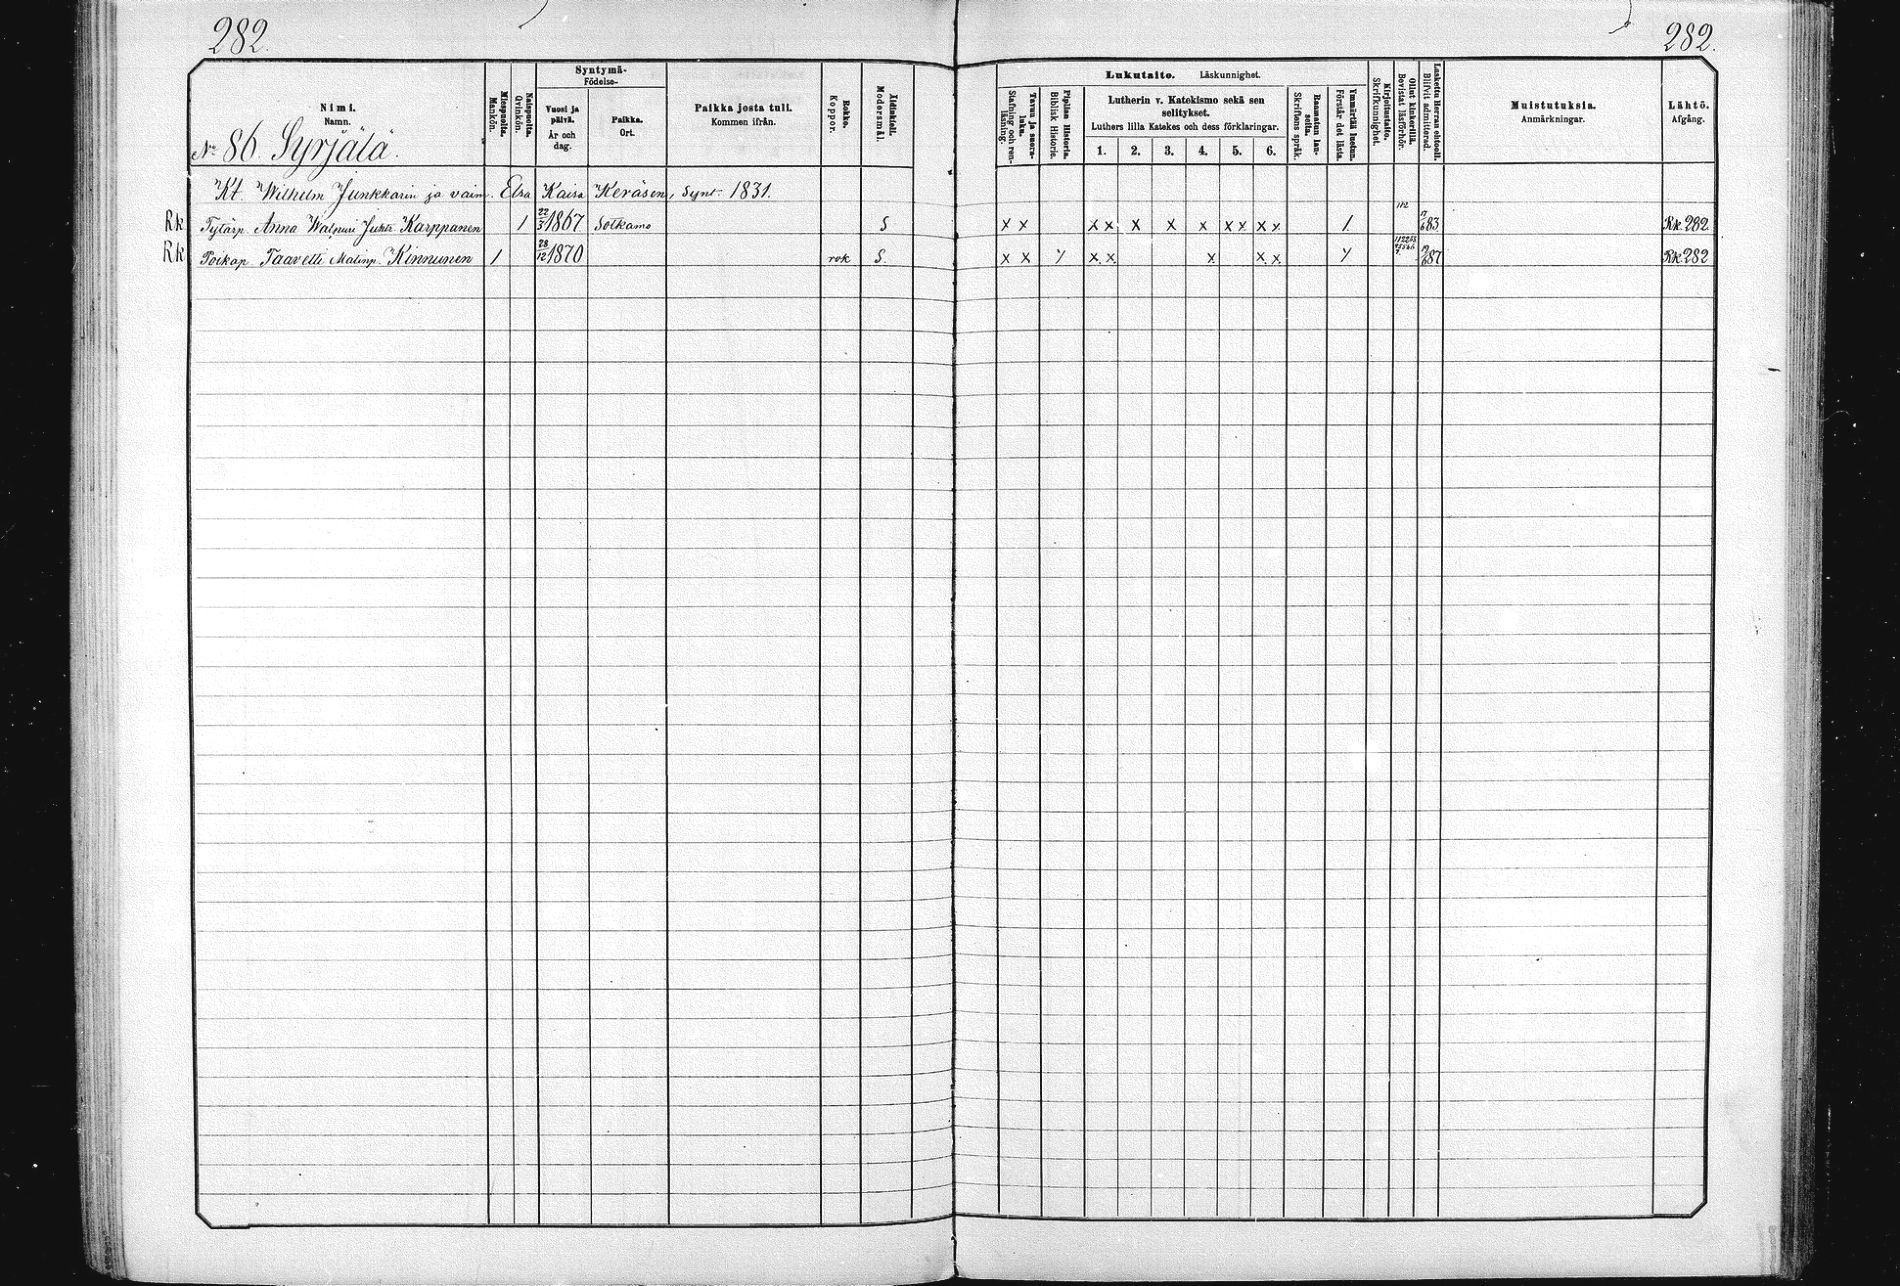 282.
282.
Nimi.
Namn.
No 86. Syrjälä.
Miespuolta.
Mankön.
Naispuolta.
Qvinkön.
Syntymä-
Födelse-
Vuosi ja päivä.
År och dag.
Paikka.
Ort.
Paikka josta tuli.
Kommen ifrån.
Rokko.
Koppor.
Äidinkieli.
Modersmål.
Lukutaito. Läskunnighet.
Tavuu ja suora-luku.
Stafning och ren-läsning.
Piplian Historia.
Biblisk Historie.
Lutherin v. Katekismo sekä sen selitykset.
Luthers lilla Katekes och dess förklaringar.
1. 2. 3. 4. 5. 6.
Raamatun lau-seita.
Skriftens språk.
Ymmärtää luetun.
Förstår det lästa.
Kirjoitustaito.
Skrifkunnighet.
Ollut kinkerillä.
Bevistat läsförhör.
Laskettu Herran ehtoolI.
Blifvit admitterad.
Muistutuksia.
Anmärkningar.
Lähtö.
Afgång.
Kt. Wilhelm Junkkarin ja vaim. Elsa Kaisa Keräsen, Synt. 1831.
Rk Tytärp. Anna Walpuri Juhte Karppanen 1 22/3 1867 Sotkamo S x x x x x x x x x x x 1 112 83 Rk. 282
Rk Poikap. Taavetti Matinp. Kinnunen 1 28/12 1870 rok S. x x y x x x x x y 87 Rk. 282